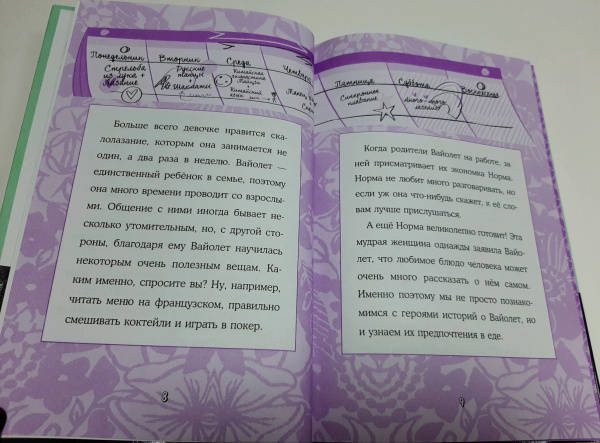 Понедельник
Стрельба
из лука +
плавание
Вторник
Русские
танцы
+
Шахматы
Среда
Китайская
Четверг
Пятница
Синхронное
плавание
Суббота
Больше всего девочке нравится ска-
лолазание, которым она занимается не
один, а два раза в неделю. Вайолет —
единственный ребёнок в семье, поэтому
она много времени проводит со взрослы-
ми. Общение с ними иногда бывает не-
сколько утомительным, но, с другой сто-
роны, благодаря ему Вайолет научилась
некоторым очень полезным вещам. Ка-
ким именно, спросите вы? Ну, например,
читать меню на французском, правильно
смешивать коктейли и играть в покер.
8
Когда родители Вайолет на работе, за
ней присматривает их экономка Норма.
Норма не любит много разговаривать, но
если уж она что-нибудь скажет, к её сло-
вам лучше прислушаться.
А ещё Норма великолепно готовит! Эта
мудрая женщина однажды заявила Вайо-
лет, что любимое блюдо человека может
очень много рассказать о нём самом.
Именно поэтому мы не просто познако-
мимся с героями историй о Вайолет, но
и узнаем их предпочтения в еде.
9